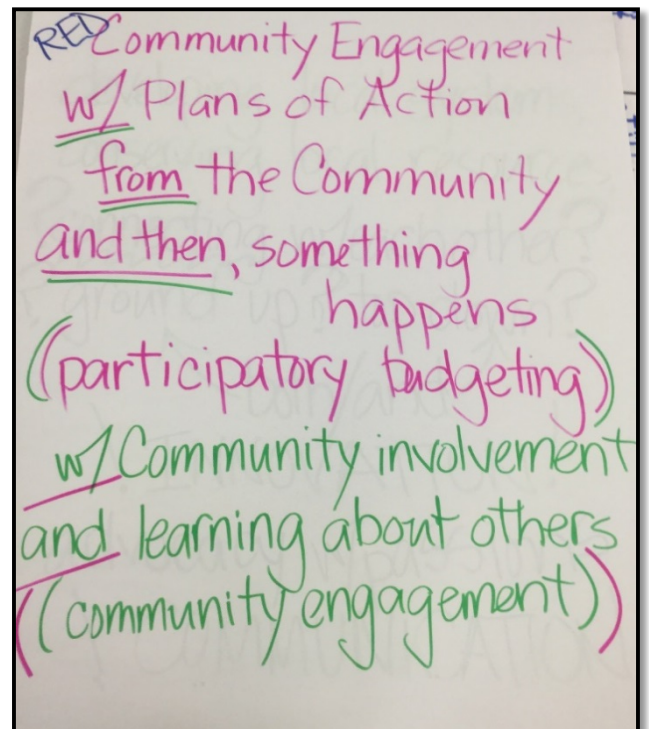 RED Community Engagement
w/ Plans of Action
from the Community
and then, something
happens
(participatory budgeting)
w/ Community involvement
and learning about others
((community engagement))